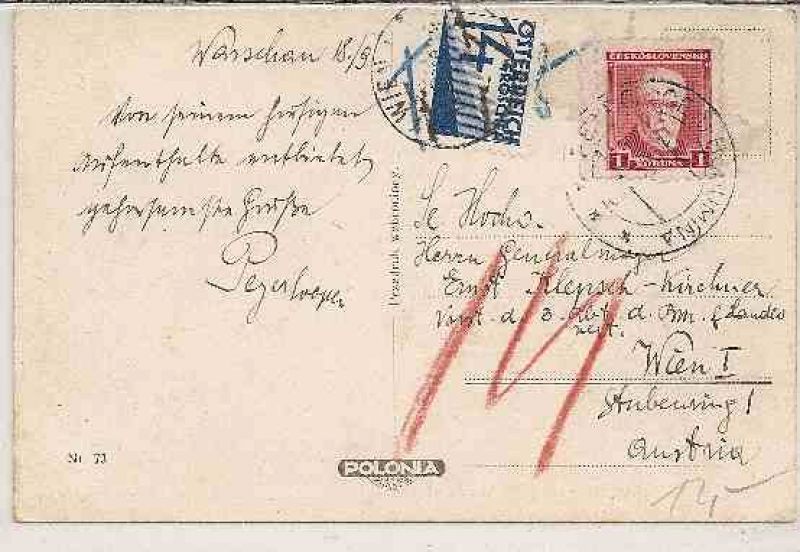 Warschau 18./9.
Von seinem hiesigen
Aufenthalte entbietet
gehorsamste Grüße
WIEN
14
ÖSTERREICH
GROSCHEN
ČESKOSLOVENSKO
1 KORUNA 1
Przedruk wzbroniony.
Sr Hochw.
Herrn Generalmajor
Ernst Klepsch-Kirchner
Vorst. d. 3. Abt. d. Bm. f. Landes
vert.
Wien I
Stubenring 1
Austria
14
Nr 73
POLONIA